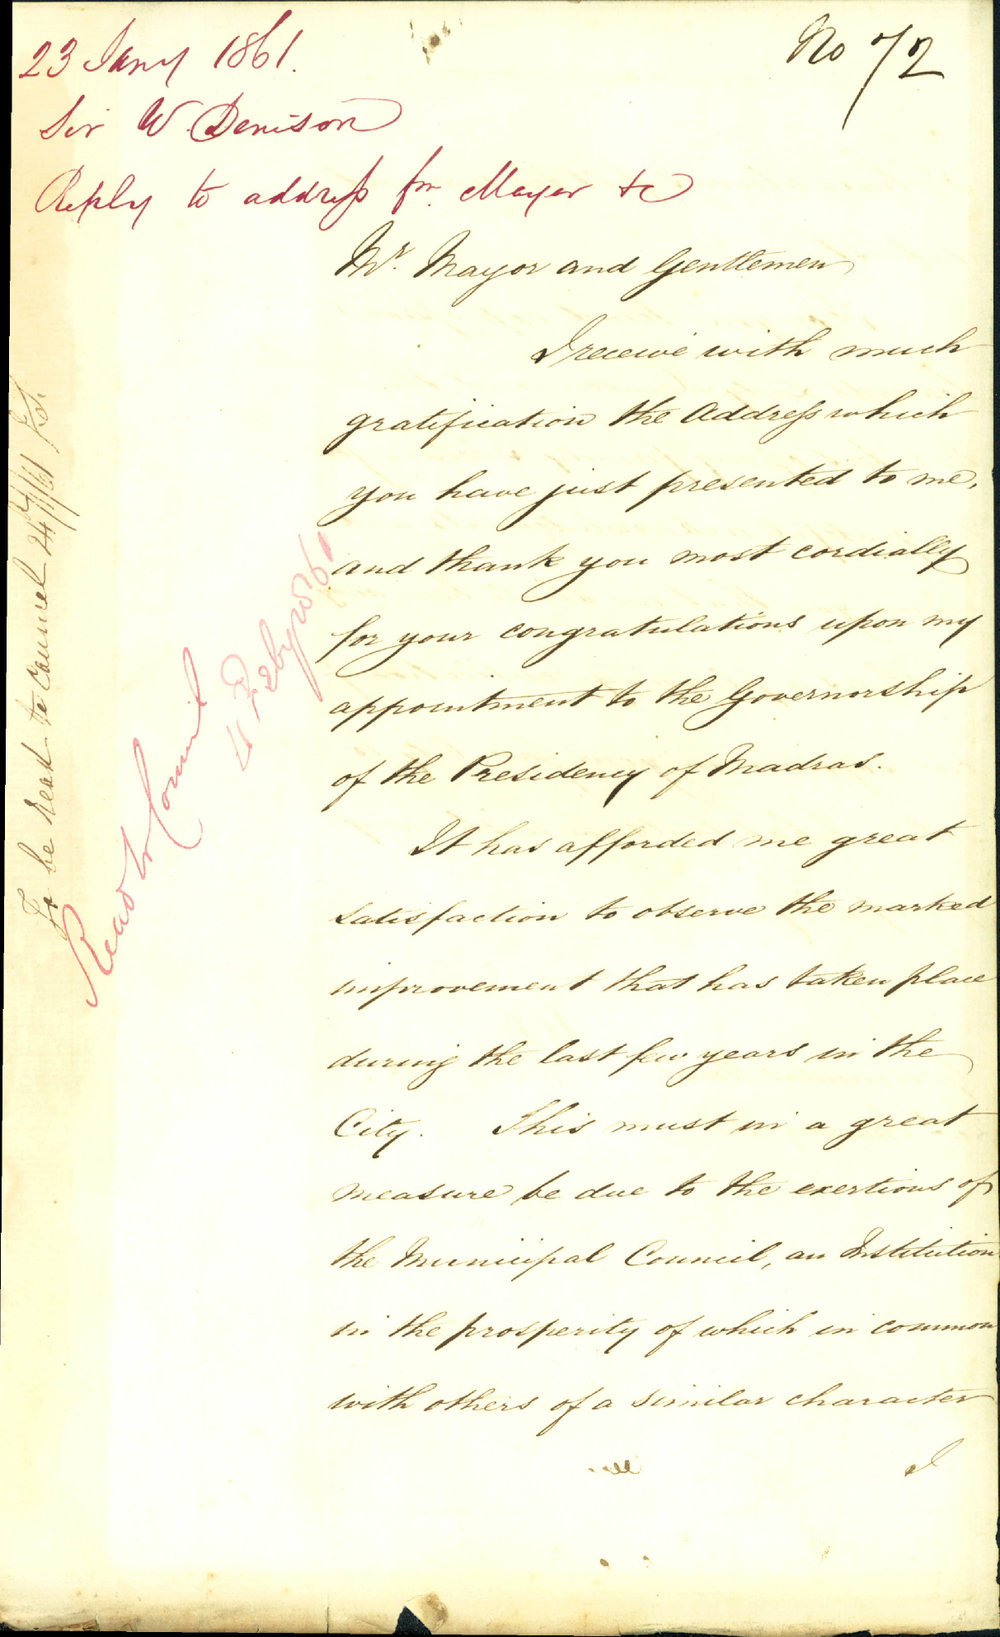 No 72
23 Jany 1861.
Sir W. Denison
Reply to address fm. Mayor &c
Mr. Mayor and Gentlemen
I receive with much
gratification the Address which
you have just presented to me,
and thank you most cordially
for your congratulations upon my
appointment to the Governorship
of the Presidency of Madras.
It has afforded me great
satisfaction to observe the marked
improvement that has taken place
during the last few years in the
City. This must in a great
measure be due to the exertions of
the Municipal Council, an Institution
in the prosperity of which in common
with others of a similar character
I
To be read to Council 24/1/61
Read to Council
4 Feby 1861